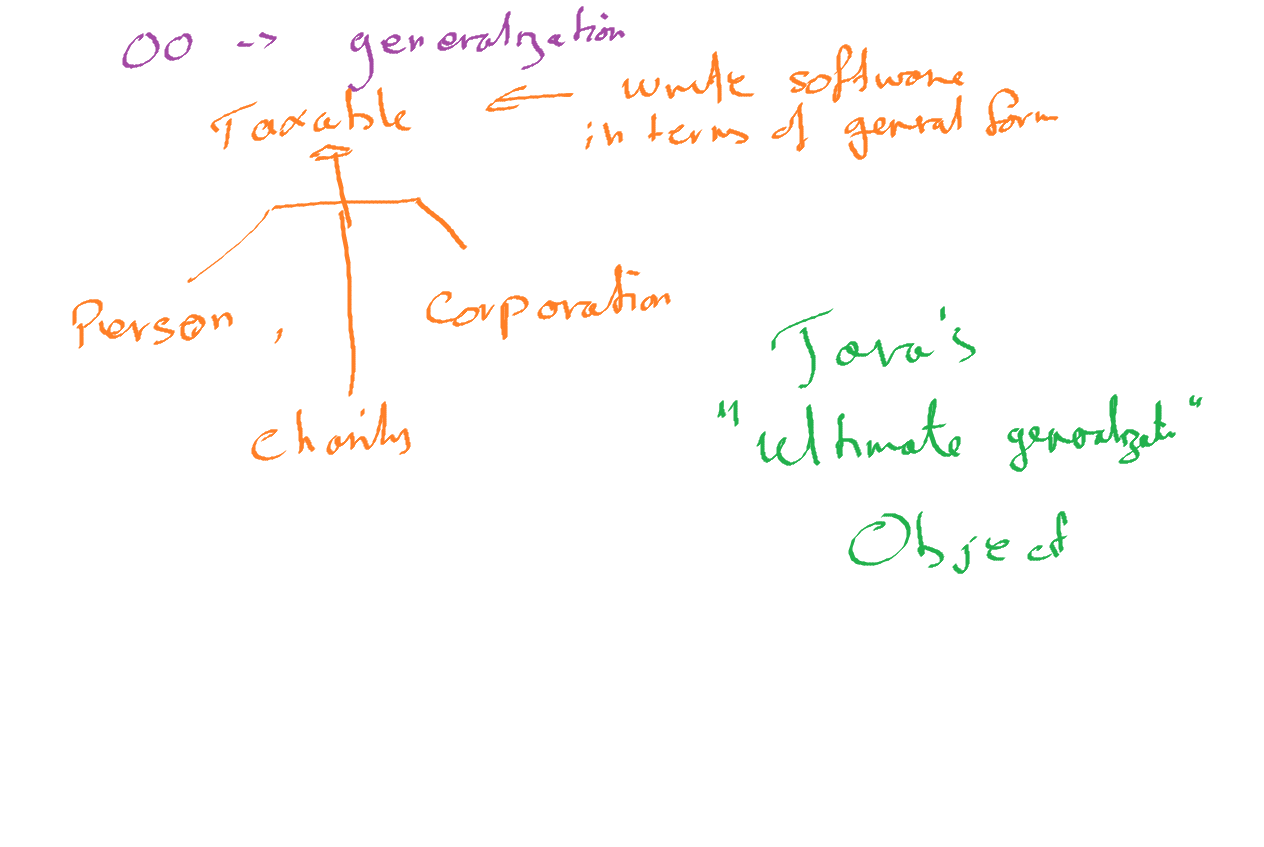 OO -> generalization
Taxable <- write software
in terms of general form
Person , Corporation
Charity
Java's
"Ultimate generalizatn"
Object